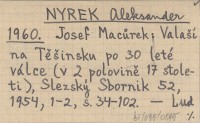 NYREK Aleksander
1960. Josef Macůrek; Valaši
na Těšínsku po 30 leté
válce (v 2 polovině 17 stole-
tí), Slezský Sborník 52,
1954, 1-2, s. 34-102. — Lud